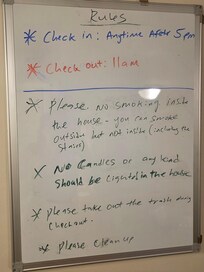 Rules
* Check in: Anytime After 5pm
* Check out: 11am
* Please No smoking inside
the house - you can smoke
outside but not inside (including the
stairs)
* No Candles or any kind
should be lighted in the house
* please take out the trash
checkout.
* please clean up